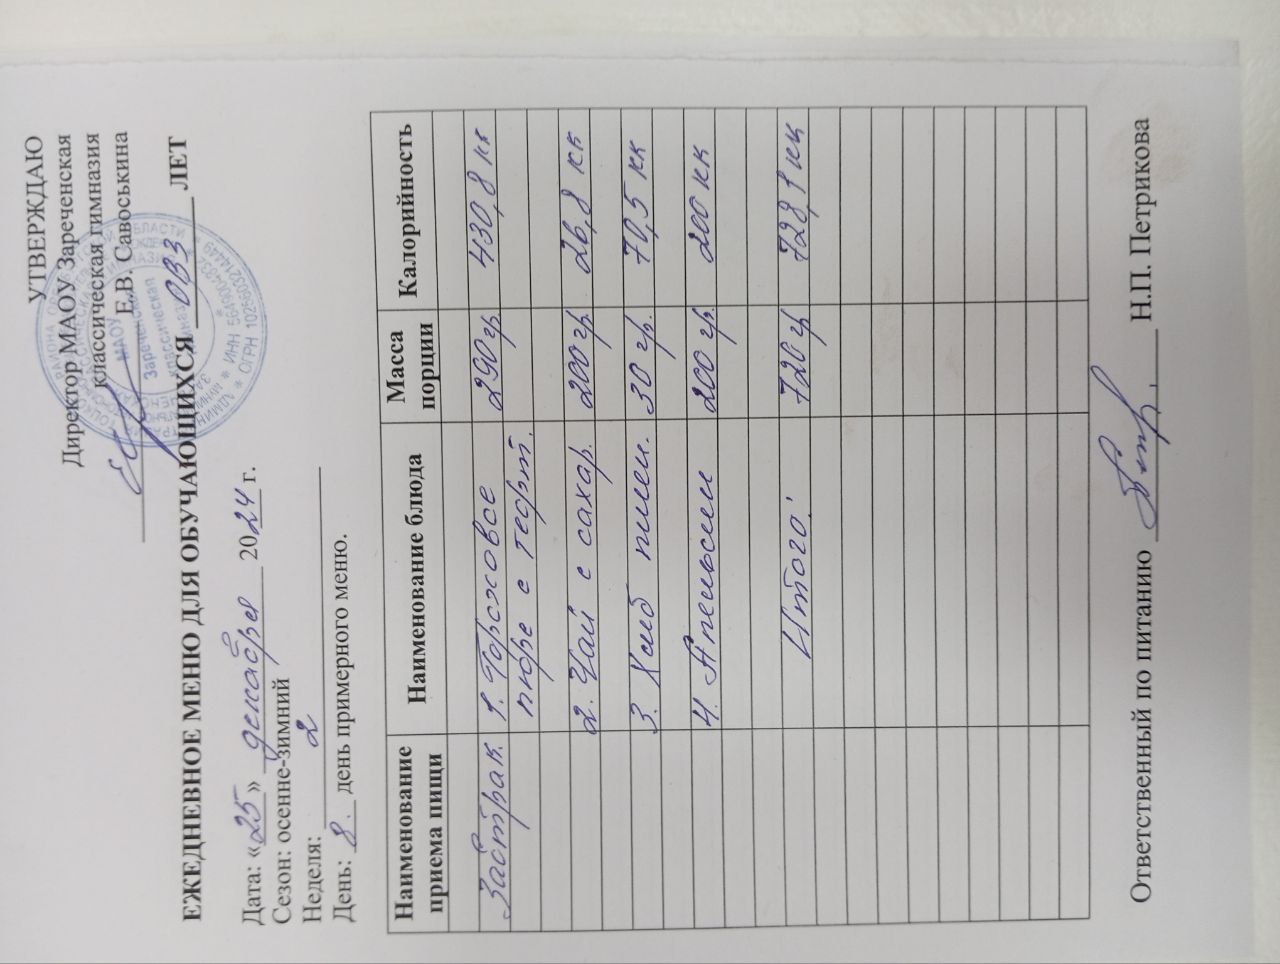 УТВЕРЖДАЮ
Директор МАОУ Зареченская
классическая гимназия
Е.В. Савоськина
ЕЖЕДНЕВНОЕ МЕНЮ ДЛЯ ОБУЧАЮЩИХСЯ ОВЗ ЛЕТ
Дата: «25» декабря 2024 г.
Сезон: осенне-зимний
Неделя: 2
День: 8. день примерного меню.
Наименование приема пищи Наименование блюда Масса порции Калорийность
Завтрак. 1. Гороховое 290 гр. 430,8 кк
пюре с тефт.
2. Чай с сахар. 200 гр. 26,8 кк
3. Хлеб пшен. 30 гр. 70,5 кк
4. Апельсин 200 гр. 200 кк
Итого: 720 гр 728,1 кк
Ответственный по питанию Н.П. Петрикова